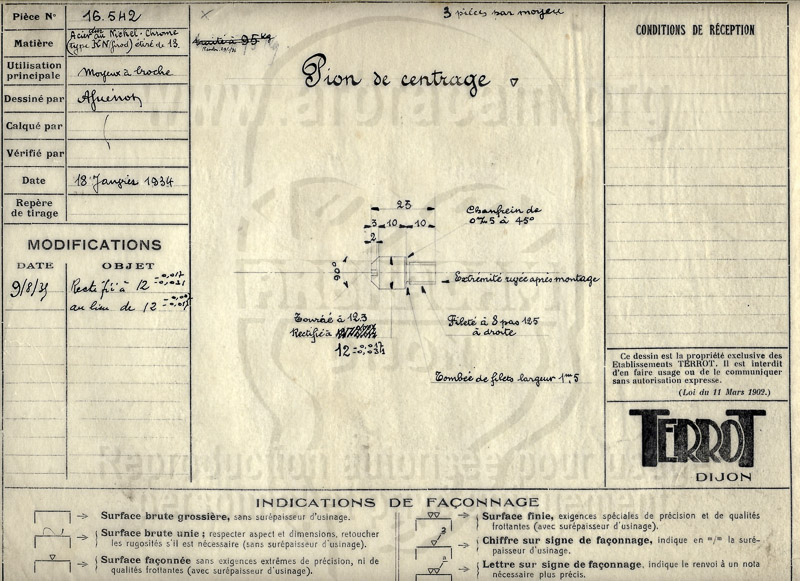 Pièce N° 16.542
Matière Acier au Nickel-Chrome
(type KN/prod) étiré de 13.
Utilisation
principale Moyeux à broche
Dessiné par
Calqué par
Vérifié par
Date 18 Janvier 1934
Repère
de tirage
MODIFICATIONS
DATE OBJET
9/8/35 Rectifié à 12 -0,017 -0,034
au lieu de 12
3 pièces par moyeu
à 95 Kg
Pion de centrage
23
3 10 10
2
90°
Chanfrein de
0,75 à 45°
Extrémité rivée après montage
Tourné à 12.3
Rectifié à
12 -0,017 -0,034
Fileté à 8 pas 125
à droite
Tombée de filets largeur 1mm,5
CONDITIONS DE RÉCEPTION
Ce dessin est la propriété exclusive des
Etablissements TERROT. Il est interdit
d'en faire usage ou de le communiquer
sans autorisation expresse.
(Loi du 11 Mars 1902.)
TERROT
DIJON
INDICATIONS DE FAÇONNAGE
Surface brute grossière, sans surépaisseur d'usinage.
Surface brute unie; respecter aspect et dimensions, retoucher
les rugosités s'il est nécessaire (sans surépaisseur d'usinage).
Surface façonnée sans exigences extrêmes de précision, ni de
qualités frottantes (avec surépaisseur d'usinage).
Surface finie, exigences spéciales de précision et de qualités
frottantes (avec surépaisseur d'usinage).
3
Chiffre sur signe de façonnage, indique en m/m la suré-
paisseur d'usinage.
a
Lettre sur signe de façonnage, indique le renvoi à un nota
nécessaire plus précis.